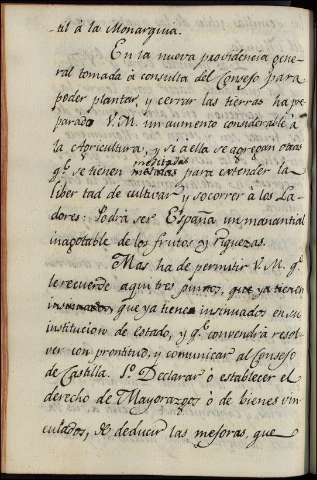 til à la Monarquia.
En la nueva providencia gene-
ral tomada à consulta del Consejo para
poder plantar, y cerrar las tierras ha pre-
parado V.M. un aumento considerable à
la Agricultura, y si à ella se agregan otras
q.e se tienen meditadas para extender la
libertad de cultivar y socorrer à los La-
dores: Podrà ser España un manantial
inagotable de los frutos y riquezas.
Mas ha de permitir V.M. q.e
le recuerde aqui tres puntos, que ya tienen
insinuados, que ya tiene insinuados en su
institucion de estado, y q.e convendrà resol-
ver con prontitud, y comunicar al Consejo
de Castilla. 1.o Declarar ò establecer el
derecho de Mayorazgos ò de bienes vin-
culados, de deducir las mejoras, que